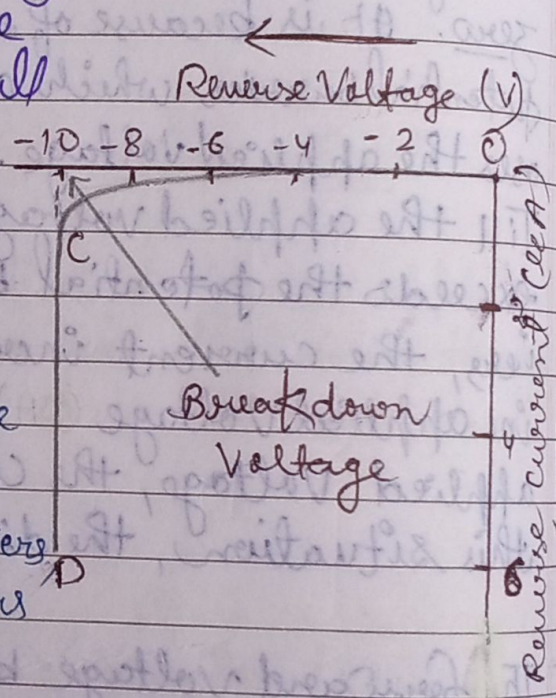 e
all
Reverse Voltage (V)
-10 -8 -6 -4 -2 0
C
Breakdown
Voltage
Reverse current
4
e
ers
D
us